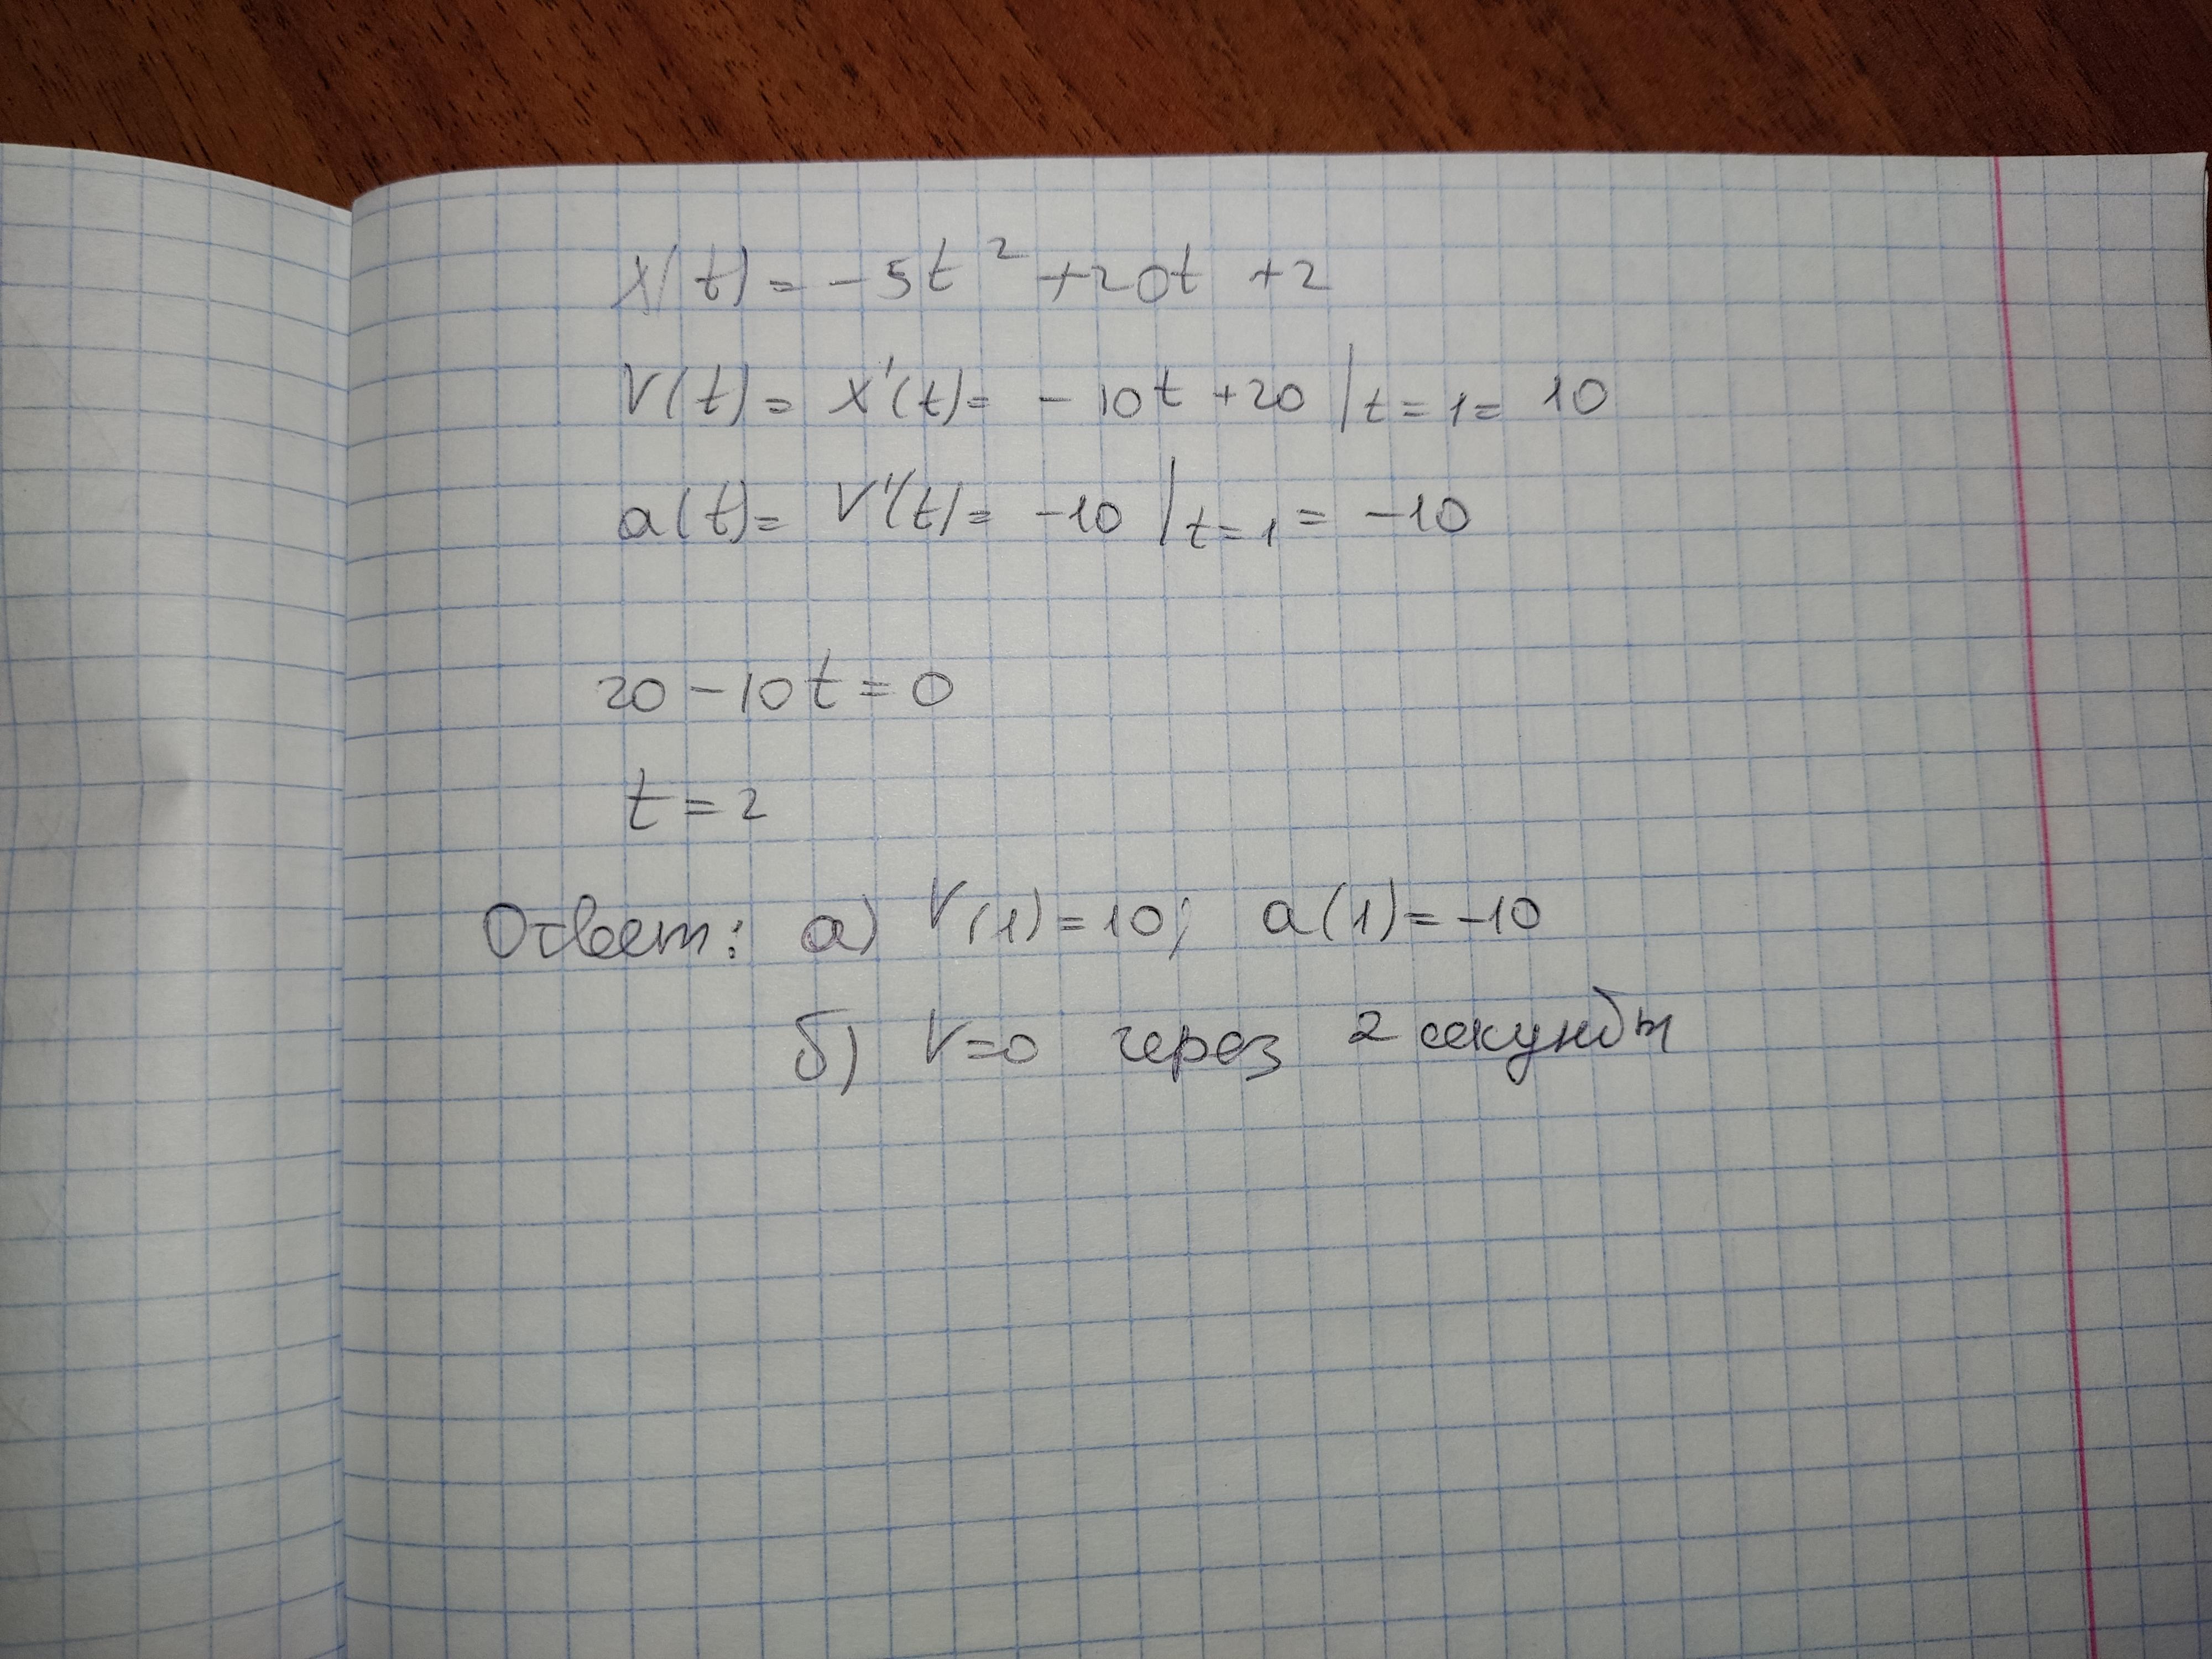 x(t) = -5t² +20t +2
V(t) = x'(t) = -10t +20 |t=1 = 10
a(t) = V'(t) = -10 |t=1 = -10
20 - 10t = 0
t = 2
Ответ: а) V(1) = 10; a(1) = -10
б) V=0 через 2 секунды